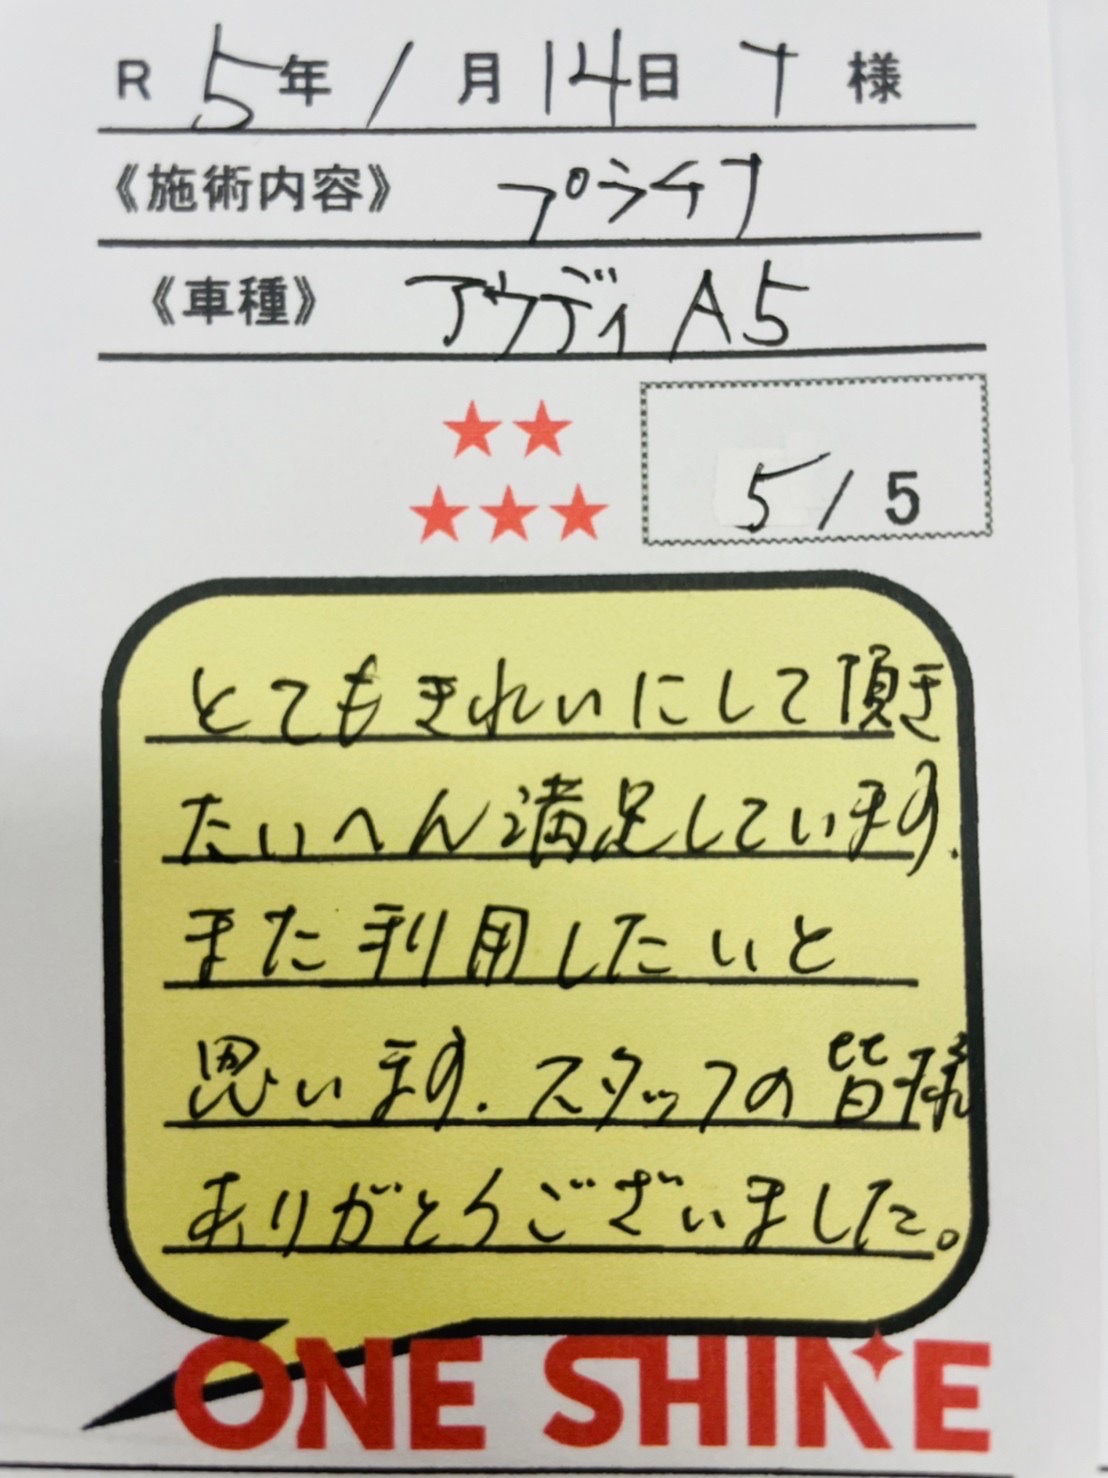 R 5年 1月 14日 T 様
《施術内容》 プラチナ
《車種》 アウディ A5
★★
★★★
5/5
とてもきれいにして頂き
たいへん満足しています.
また利用したいと
思います.スタッフの皆様
ありがとうございました。
ONE SHINE